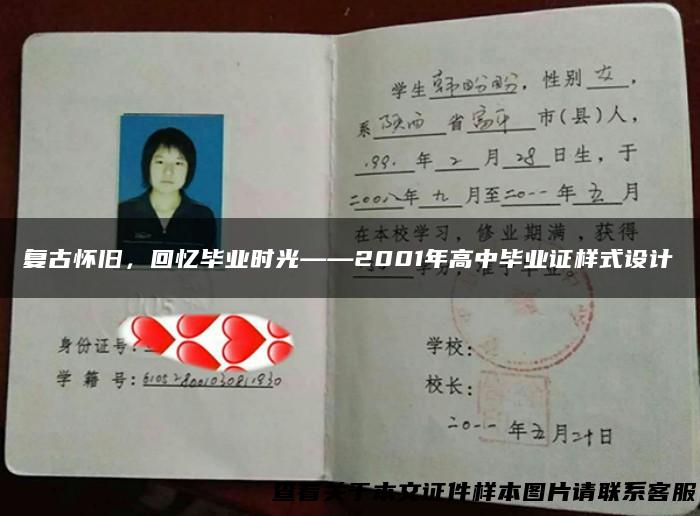 学生韩盼盼，性别女，
系陕西省富平市(县)人，
1991年2月28日生，于
二00八年九月至二0一一年五月
在本校学习，修业期满，获得
学分，准予毕业。
复古怀旧，回忆毕业时光——2001年高中毕业证样式设计
身份证号：
学籍号：
学校：
校长：
二0一一年五月二十日
查看关于本文证件样本图片请联系客服